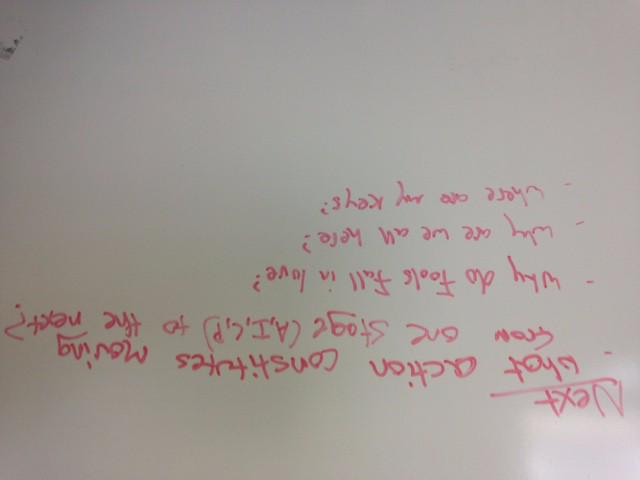 Next
- what action constitutes moving
from one stage (A,I,C,P) to the next?
- why do fools fall in love?
- why are we all here?
- where are my keys?